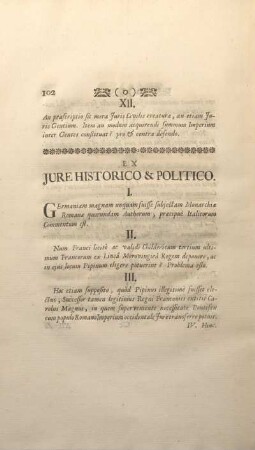 102 (o)
XII.
An præscriptio sit mera Juris Civilis creatura, an etiam Ju-
ris Gentium. Item an modum acquirendi summum Imperium
inter Gentes constituat? pro & contra defendo.
EX
JURE HISTORICO & POLITICO.
I.
Germaniam magnam unquam fuisse subjectam Monarchiæ
Romanæ quorundam Authorum, præcipuè Italicorum
Commentum est.
II.
Num Franci licitè ac validè Childericum tertium ulti-
mum Francorum ex Linea Merovingica Regem deponere, ac
in ejus locum Pipinum eligere potuerint? Problema esto.
III.
Hoc etiam supposito, quòd Pipinus illegitimè fuisset ele-
ctus; Successor tamen legitimus Regni Francorum extitit Ca-
rolus Magnus, in quem superveniente necessitate Pontifex
cum populo Romano Imperium occidentale Jure transferre potuit.
IV. Hinc